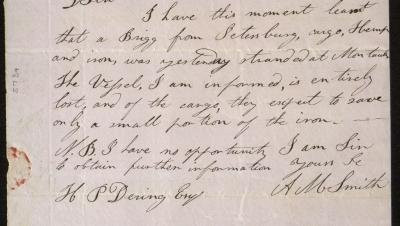 Sir
I have this moment learnt
that a Brigg from Petersburg, cargo, Hemp
and iron, was yesterday stranded at Montauk
The Vessel, I am informed, is entirely
lost, and of the cargo, they expect to save
only a small portion of the iron. —
N.B. I have no opportunity I am Sir
to obtain further information Yours &c
H P Dering Esqr A M Smith